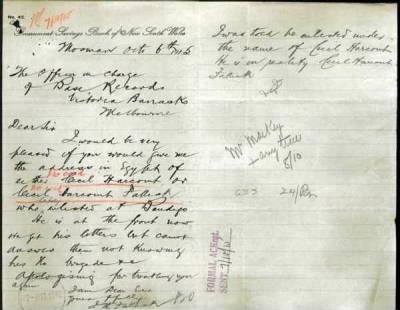 No. 42.
Government Savings Bank of New South Wales
Mosman Oct 6th 1915
The Officer in Charge
of Base Records
Victoria Barracks
Melbourne
Dear Sir
I would be very
pleased if you would give me
the address in Egypt of
Cecil Harcourt or
Cecil Harcourt
who enlisted at Bendigo
He is at the front now
we get his letters but cant
answer them not knowing
his No brigade &c
Apologising for troubling you
again
I am Dear Sir
I was told he enlisted under
the name of Cecil Harcourt
He is in reality Cecil Harcourt
Mr
6/10
FORMAL ACK
SENT 7/10/15